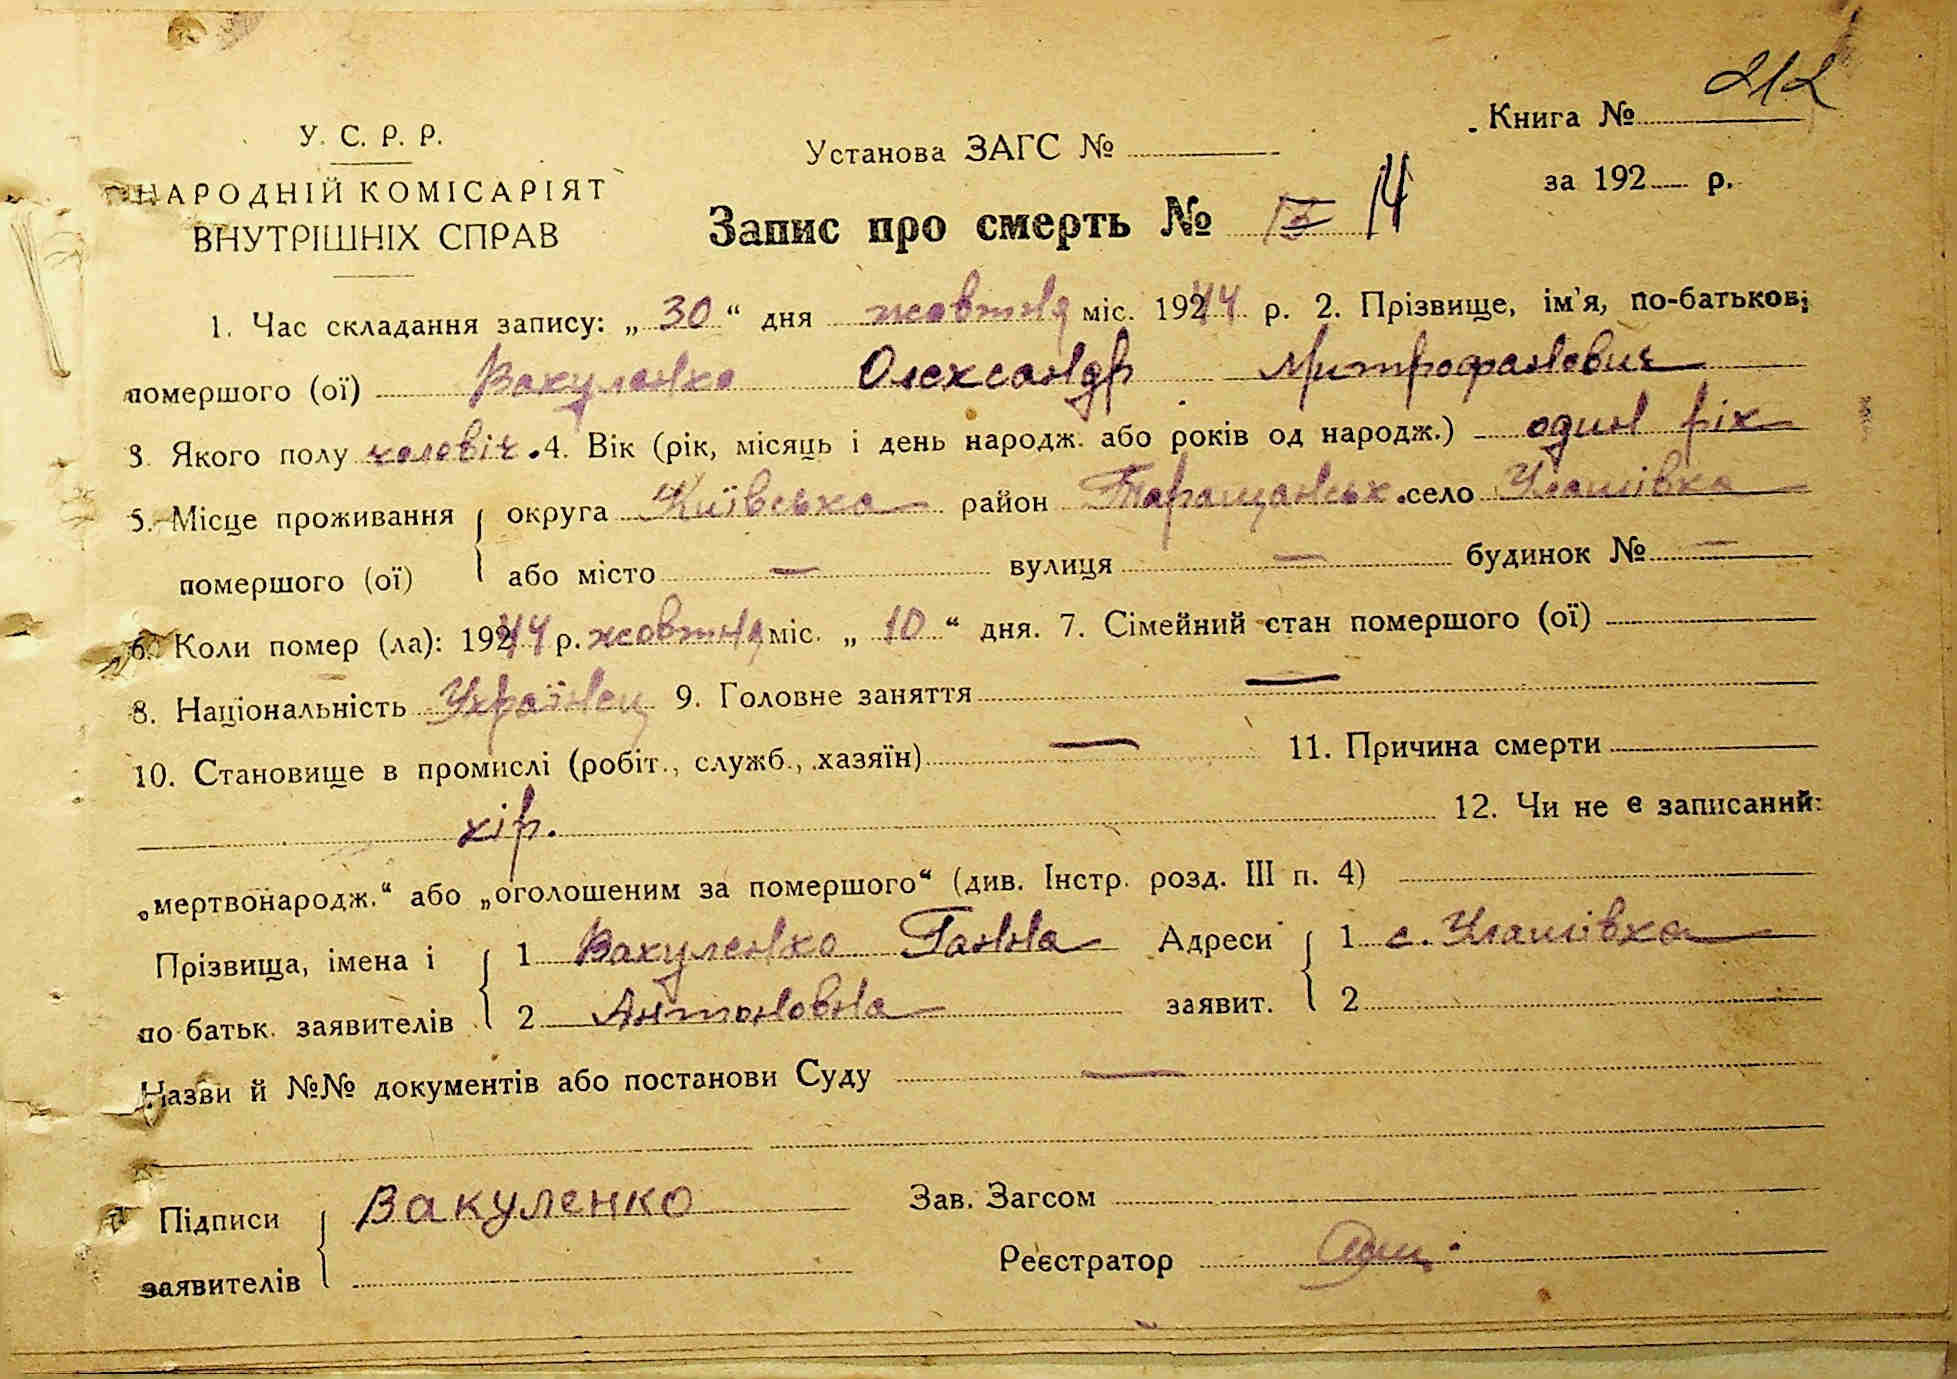 212
У. С. Р. Р.
НАРОДНІЙ КОМІСАРІЯТ
ВНУТРІШНІХ СПРАВ
Установа ЗАГС №
Книга №
за 192 р.
Запис про смерть № 13 14
1. Час складання запису: „ 30 “ дня жовтня міс. 1944 р. 2. Прізвище, ім’я, по-батькові
помершого (ої) Вакуленко Олександр Митрофанович
3 Якого полу чоловіч. 4. Вік (рік, місяць і день народж. або років од народж.) один рік
5. Місце проживання округа Київська район Таращанськ. село Улашівка
помершого (ої) або місто — вулиця — будинок № —
6. Коли помер (ла): 1944 р. жовтня міс. „ 10 “ дня. 7. Сімейний стан помершого (ої)
8. Національність Українец 9. Головне заняття —
10. Становище в промислі (робіт., служб., хазяїн) — 11. Причина смерти
кір. 12. Чи не є записаний:
„мертвонародж.“ або „оголошеним за помершого“ (див. Інстр. розд. III п. 4)
Прізвища, імена і 1 Вакуленко Ганна Адреси 1 с. Улашівка
по батьк. заявителів 2 Антоновна заявит. 2
Назви й №№ документів або постанови Суду —
Підписи Вакуленко Зав. Загсом
заявителів Реєстратор